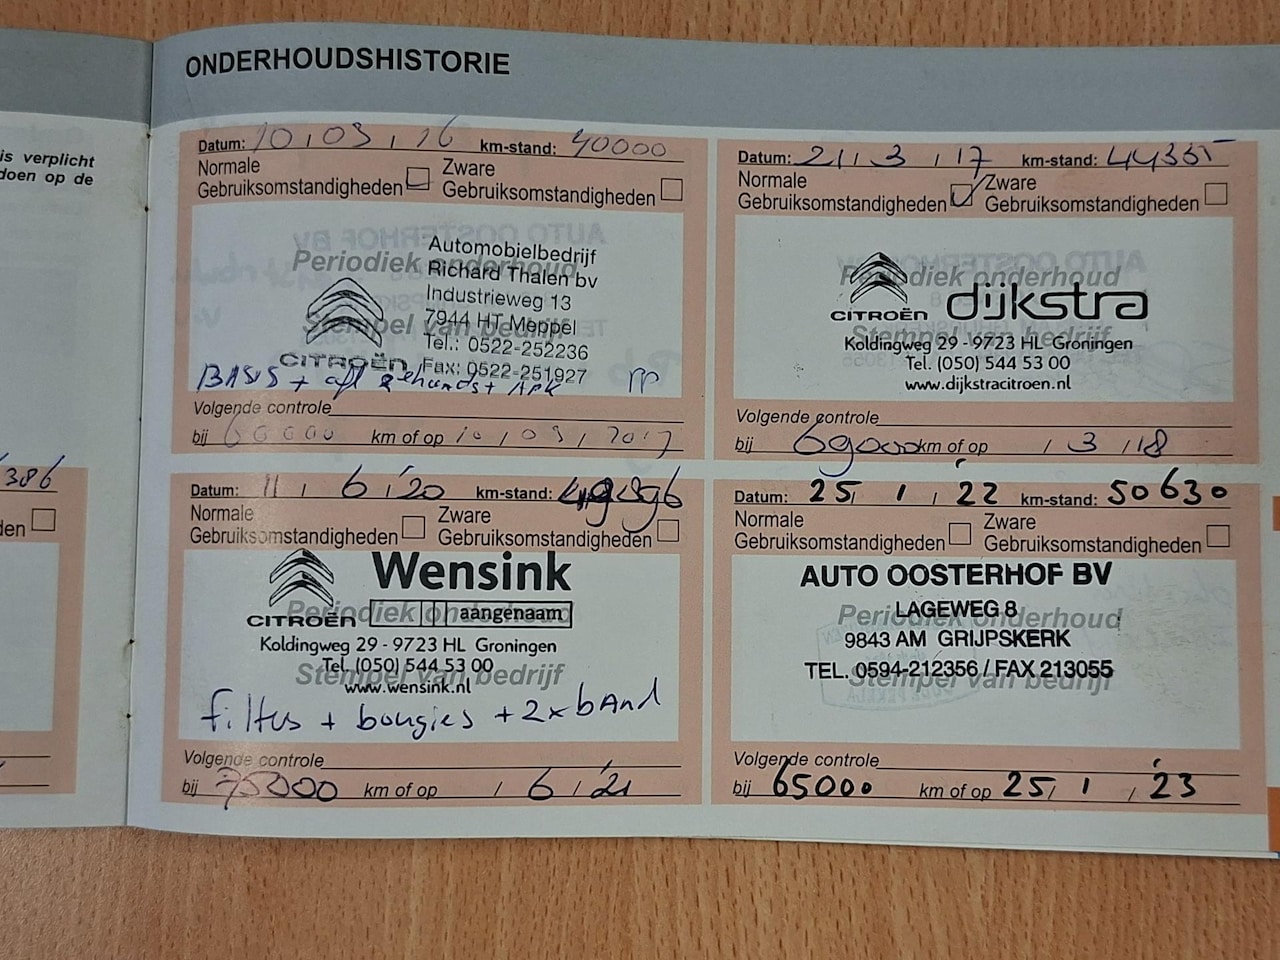 ONDERHOUDSHISTORIE
is verplicht
doen op de
386
en
Datum: 10 / 03 / 16 km-stand: 40000
Normale Gebruiksomstandigheden
Zware Gebruiksomstandigheden
Periodiek onderhoud
Stempel van bedrijf
Automobielbedrijf
Richard Thalen bv
Industrieweg 13
7944 HT Meppel
Tel.: 0522-252236
Fax: 0522-251927
CITROËN
BASIS + APK
Volgende controle
bij 60000 km of op 10 / 03 / 2017
Datum: 21 / 3 / 17 km-stand: 44355
Normale Gebruiksomstandigheden
Zware Gebruiksomstandigheden
Periodiek onderhoud
Stempel van bedrijf
CITROËN dijkstra
Koldingweg 29 - 9723 HL Groningen
Tel. (050) 544 53 00
www.dijkstracitroen.nl
Volgende controle
bij 69000 km of op / 3 / 18
Datum: 11 / 6 / '20 km-stand:
Normale Gebruiksomstandigheden
Zware Gebruiksomstandigheden
Periodiek onderhoud
Stempel van bedrijf
CITROËN Wensink
aangenaam
Koldingweg 29 - 9723 HL Groningen
Tel. (050) 544 53 00
www.wensink.nl
filters + bougies + 2x band
Volgende controle
bij 75000 km of op / 6 / '21
Datum: 25 / 1 / '22 km-stand: 50630
Normale Gebruiksomstandigheden
Zware Gebruiksomstandigheden
Periodiek onderhoud
Stempel van bedrijf
AUTO OOSTERHOF BV
LAGEWEG 8
9843 AM GRIJPSKERK
TEL. 0594-212356 / FAX 213055
Volgende controle
bij 65000 km of op 25 / 1 / '23